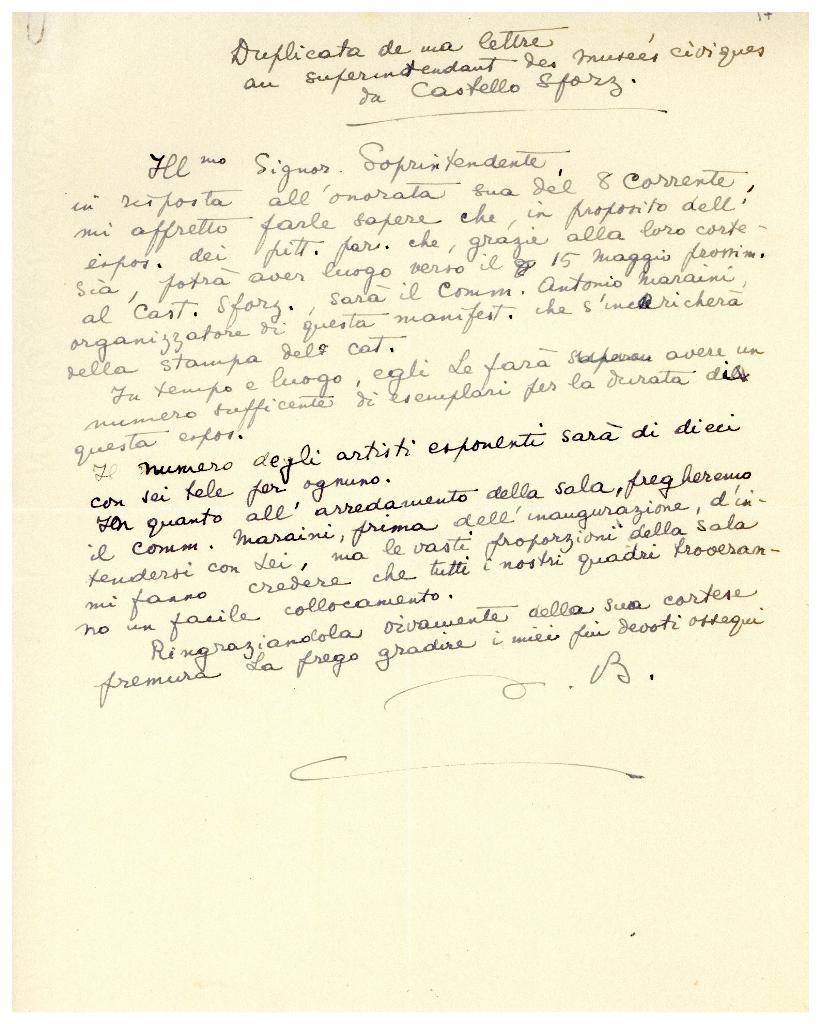 17
Duplicata de ma lettre
au superintendant des museés civiques
da Castello Sforz.
Ill mo Signor. Soprintendente,
in risposta all'onorata sua del 8 Corrente,
mi affretto farle sapere che, in proposito dell'
espos. dei pitt. par. che, grazie alla loro corte-
sia, potrà aver luogo verso il 15 Maggio prossim.
al Cast. Sforz., sarà il Comm. Antonio Maraini,
organizzatore di questa manifest. che s'incaricherà
della stampa del cat.
In tempo e luogo, egli Le farà avere un
numero sufficente di esemplari per la durata di
questa espos.
Il numero degli artisti esponenti sarà di dieci
con sei tele per ognuno.
In quanto all'arredamento della sala, pregheremo
il Comm. Maraini, prima dell'inaugurazione, d'in-
tendersi con Lei, ma le vasti proporzioni della Sala
mi fanno credere che tutti i nostri quadri troveran-
no un facile collocamento.
Ringraziandola vivamente della sua cortese
premura La prego gradire i miei piu devoti ossequi
B.